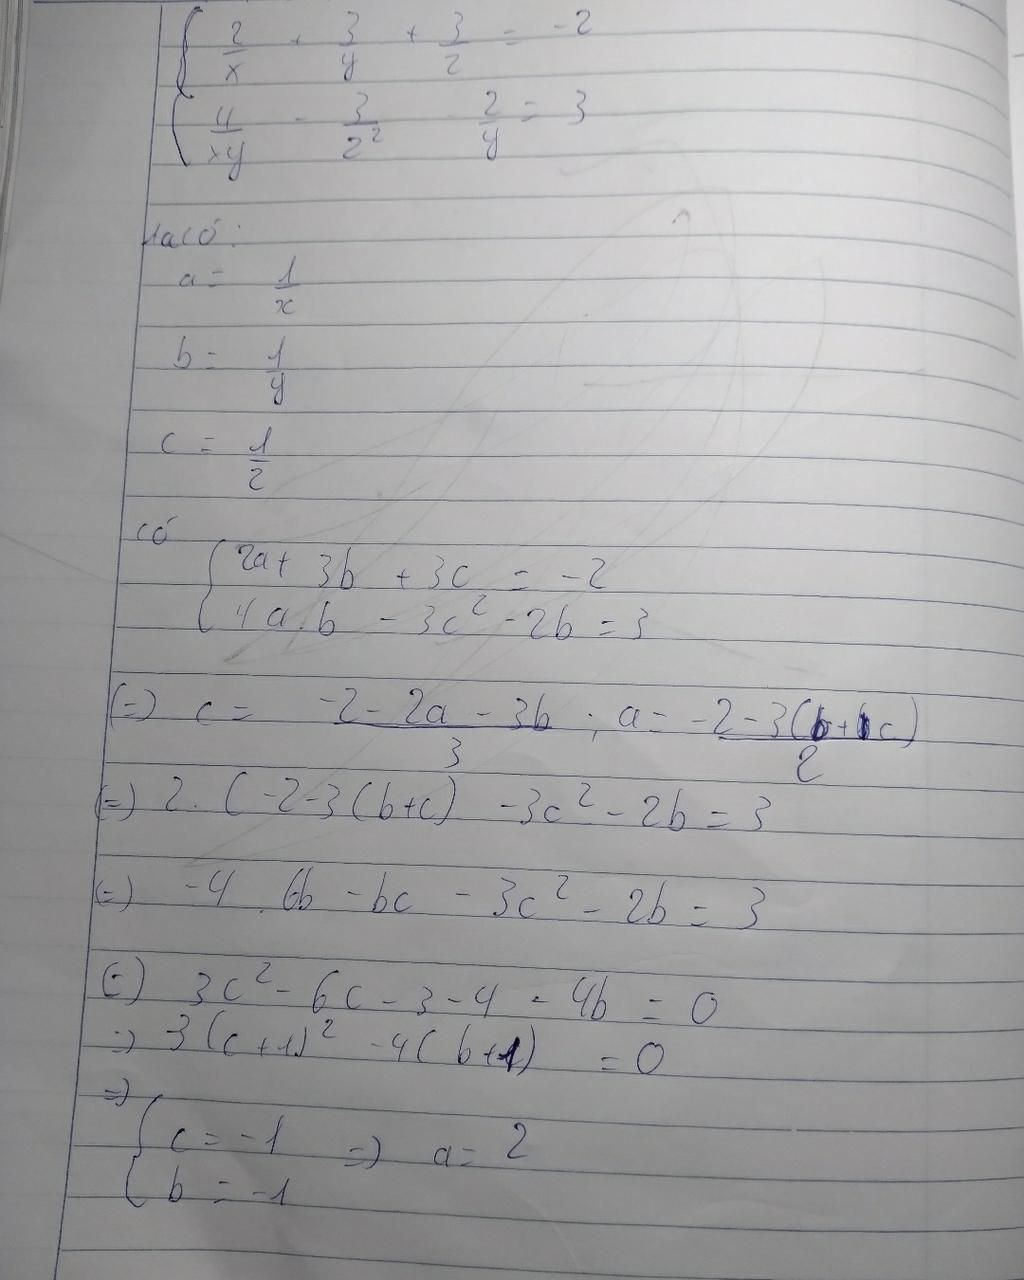 2/x + 3/y + 3/z = -2
4/xy - 3/z² - 2/y = 3
Ta có:
a = 1/x
b = 1/y
c = 1/z
có
2a + 3b + 3c = -2
4a.b - 3c² - 2b = 3
(=) c = (-2 - 2a - 3b)/3 ; a = (-2 - 3(b+c))/2
(=) 2. (-2-3(b+c) - 3c² - 2b = 3
(=) -4 . 6b - 6c - 3c² - 2b = 3
(=) 3c² - 6c - 3 - 4 - 4b = 0
=) -3(c+1)² - 4(b+1) = 0
=)
c = -1 =) a = 2
b = -1